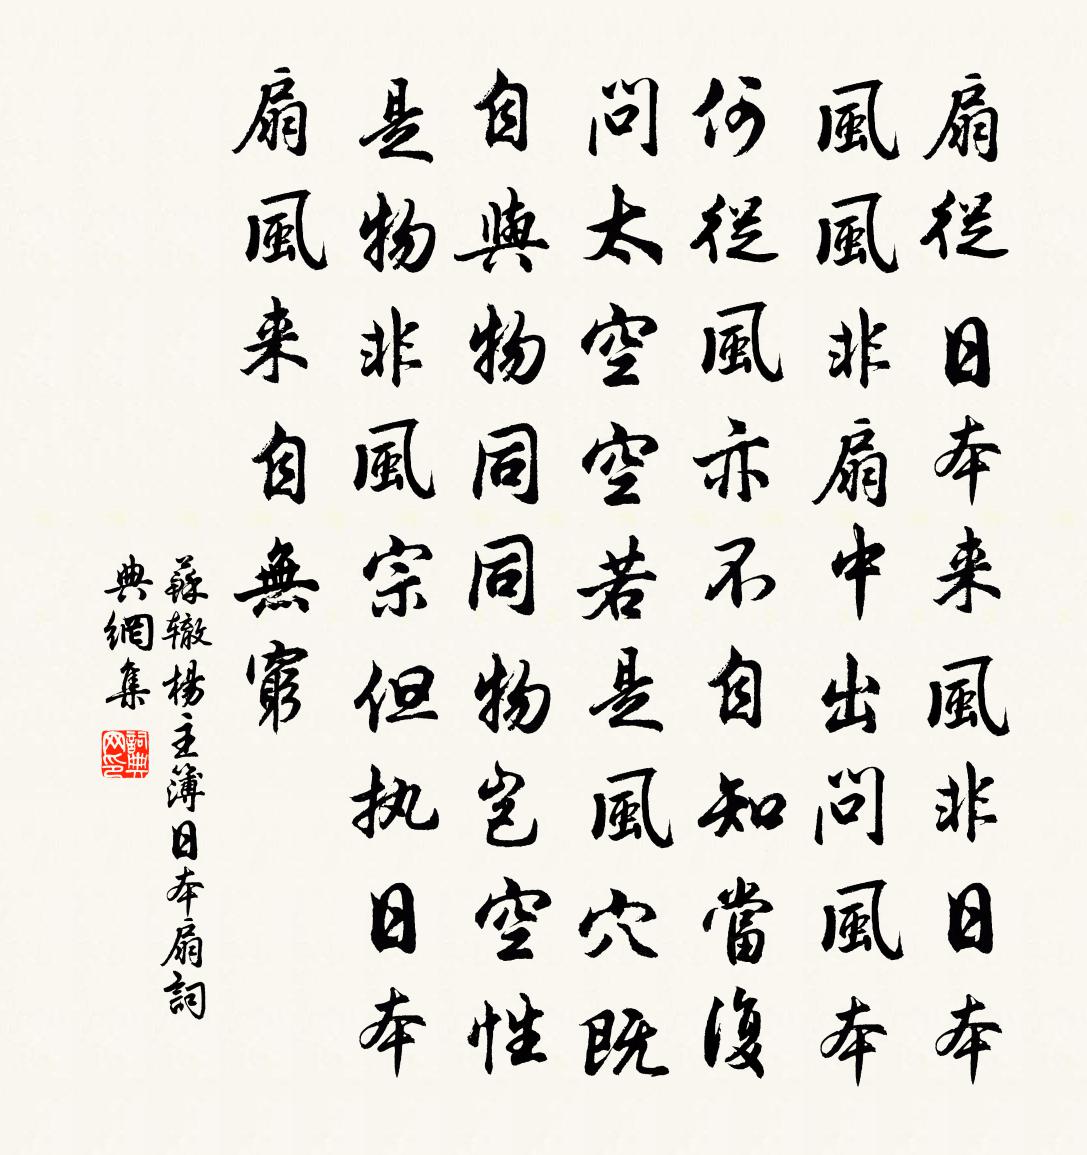 扇從日本来風非日本
風風非扇中出問風本
何從風亦不自知當復
問太空空若是風穴既
自與物同同物岂空性
是物非風宗但执日本
扇風来自無窮
蘇辙楊主簿日本扇詞
典網集
詞典网印